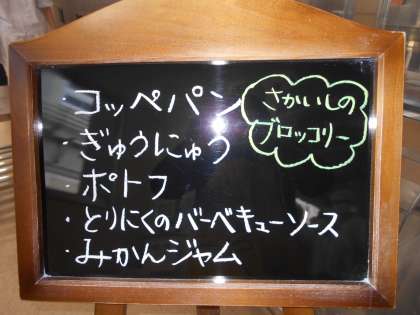 ・コッペパン
・ぎゅうにゅう
ポトフ
・とりにくのバーベキューソース
・みかんジャム
さかいしの
ブロッコリー